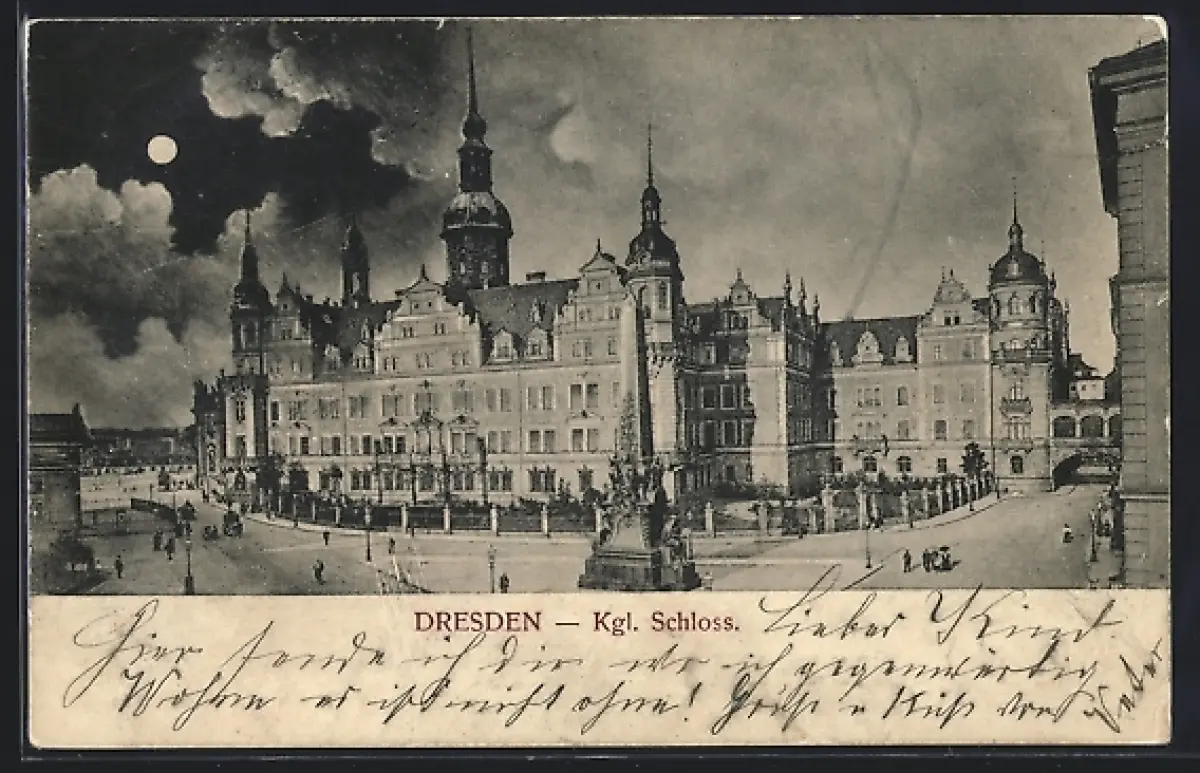 DRESDEN — Kgl. Schloss.
Liebes Kind.
Hier sende ich dir wo ich gegenwärtig
Wohne es ist nicht ohne! Gruß u Kuß von Vater